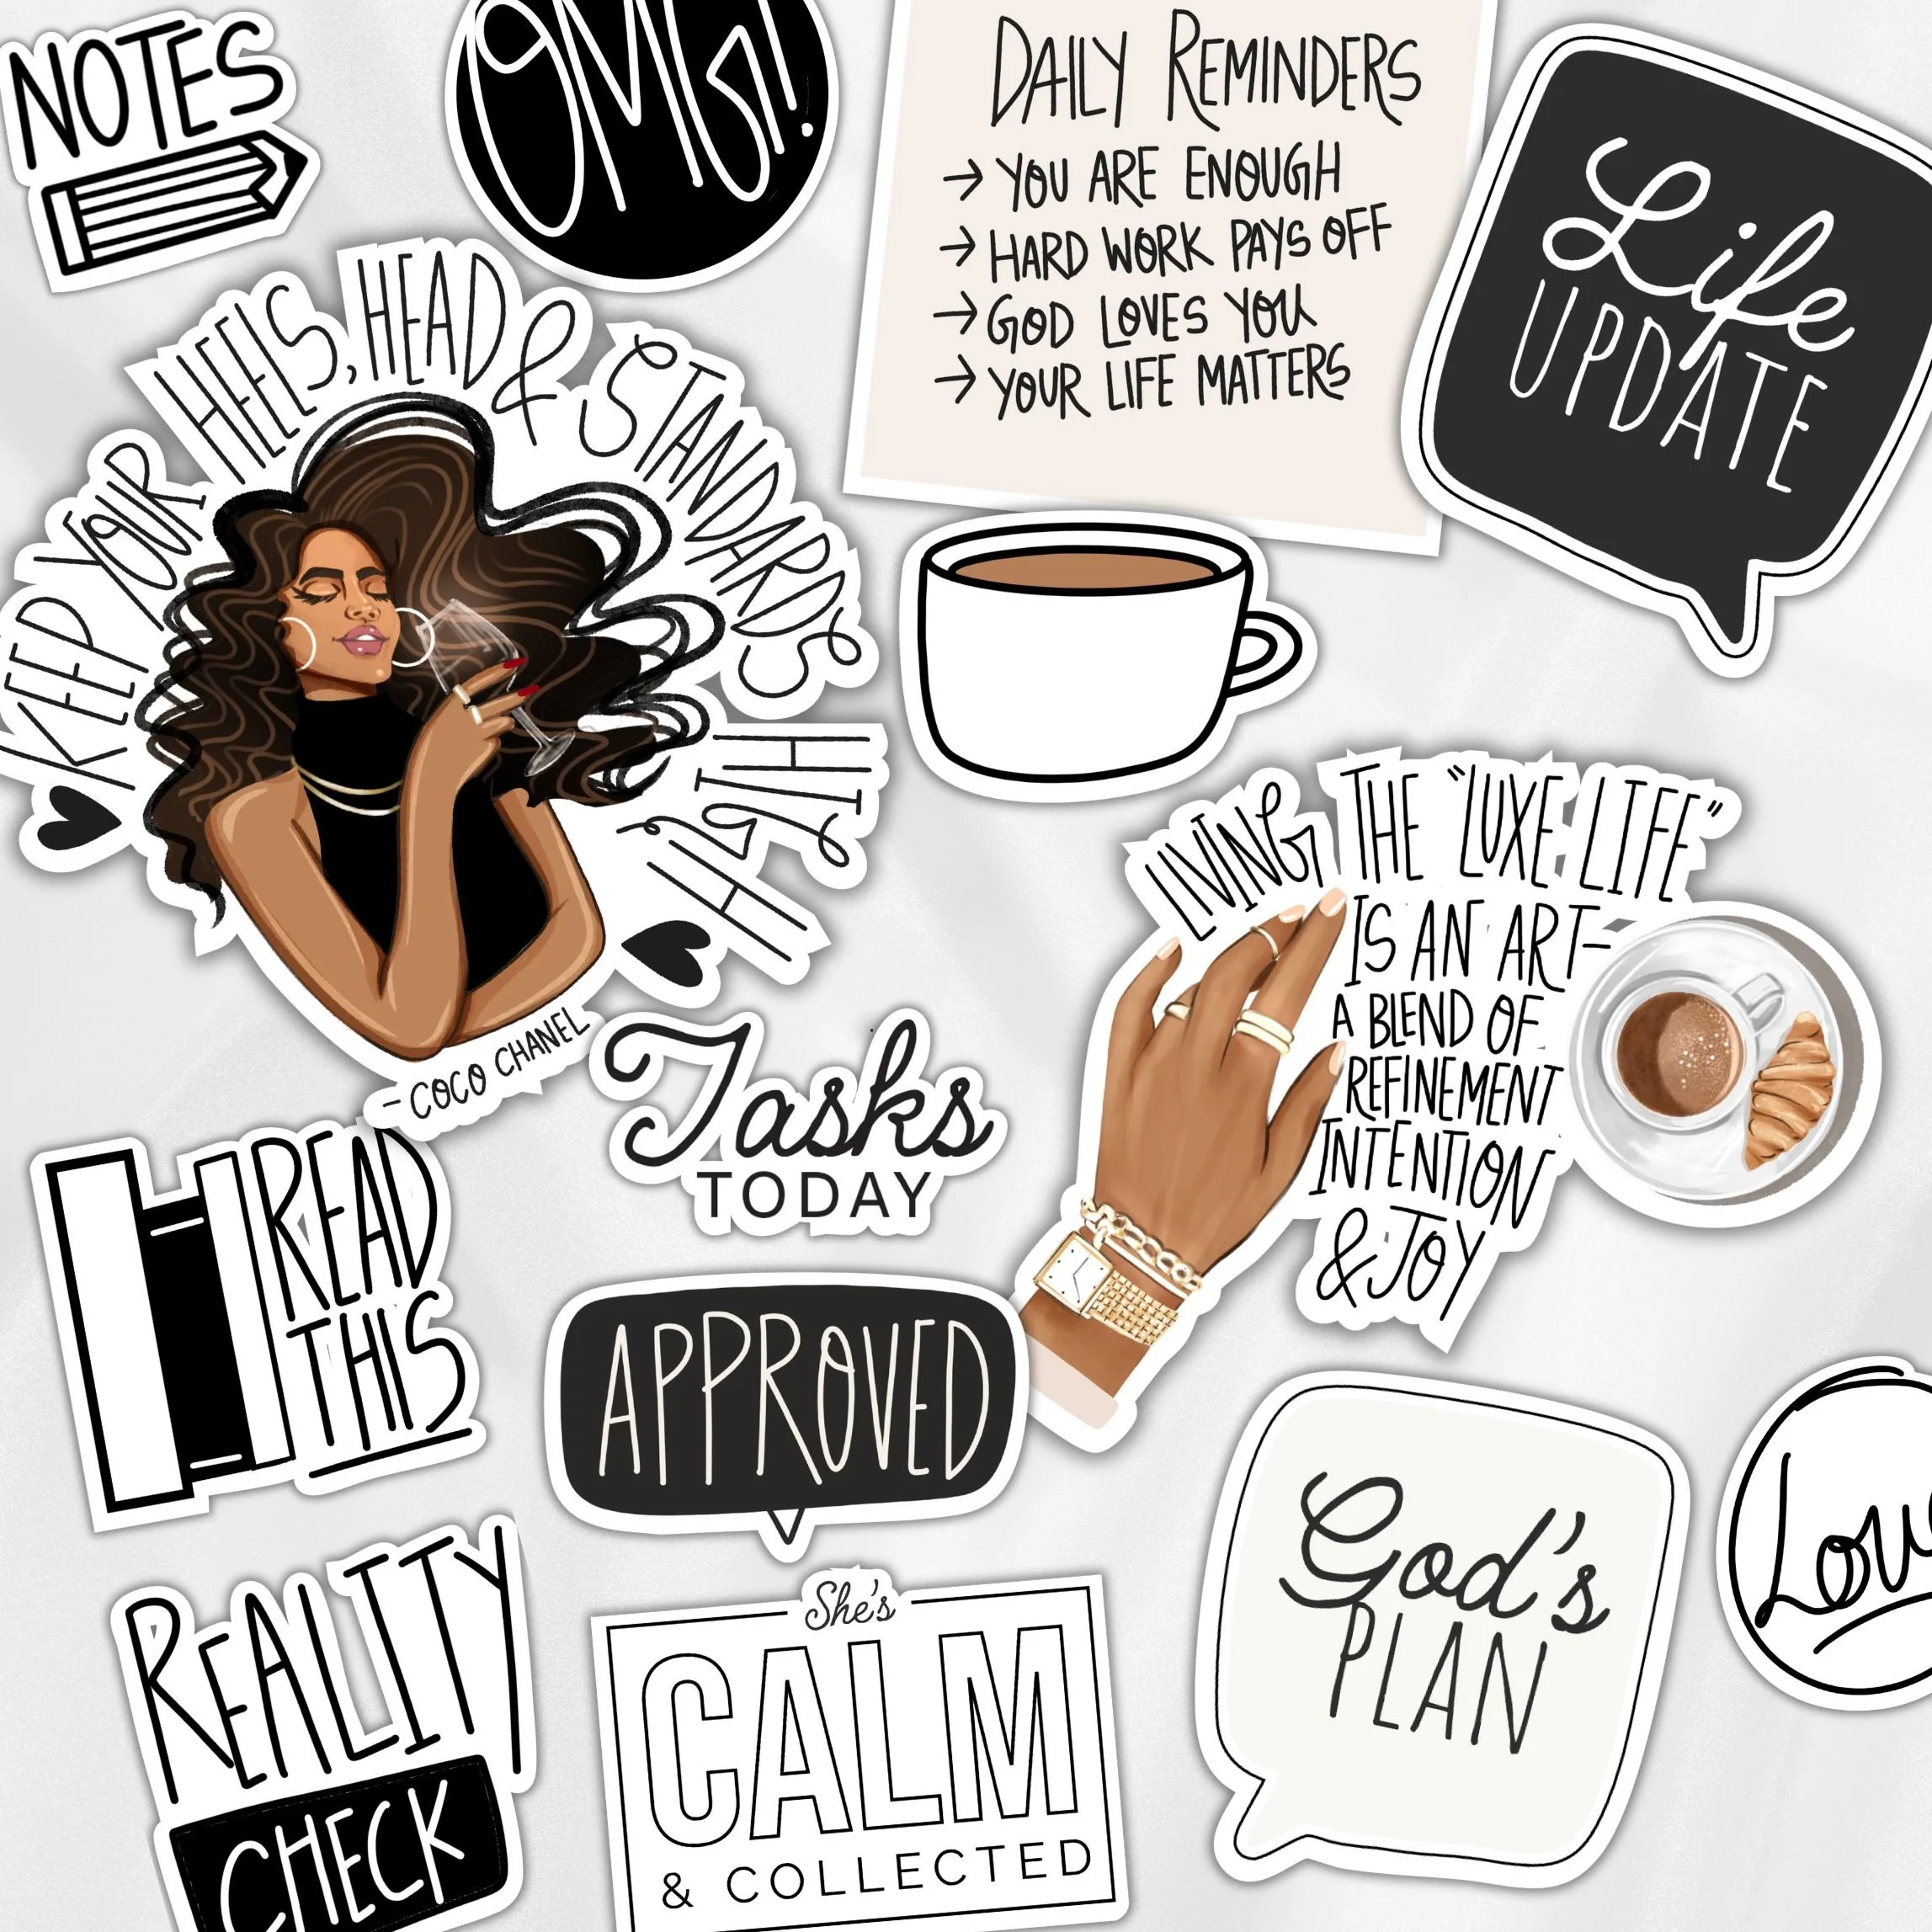 NOTES
OMG!
DAILY REMINDERS
→ YOU ARE ENOUGH
→ HARD WORK PAYS OFF
→ GOD LOVES YOU
→ YOUR LIFE MATTERS
Life
UPDATE
KEEP YOUR HEELS, HEAD & STANDARDS HIGH
- COCO CHANEL
LIVING THE "LUXE LIFE"
IS AN ART-
A BLEND OF
REFINEMENT
INTENTION
& JOY
Tasks
TODAY
READ
THIS
APPROVED
God's
PLAN
REALITY
CHECK
She's
CALM
& COLLECTED